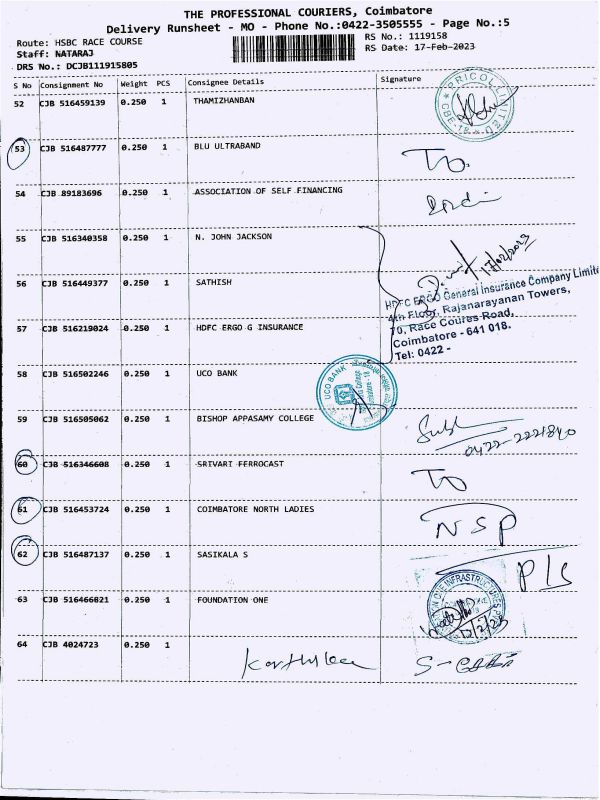 THE PROFESSIONAL COURIERS, Coimbatore
Delivery Runsheet - MO - Phone No.:0422-3505555 - Page No.:5
Route: HSBC RACE COURSE
RS No.: 1119158
Staff: NATARAJ
RS Date: 17-Feb-2023
DRS No.: DCJB111915805
S No Consignment No Weight PCS Consignee Details Signature
52 CJB 516459139 0.250 1 THAMIZHANBAN
PRICOL LIMITED
CBE-18
53 CJB 516487777 0.250 1 BLU ULTRABAND
54 CJB 89183696 0.250 1 ASSOCIATION OF SELF FINANCING
55 CJB 516340358 0.250 1 N. JOHN JACKSON
17/02/2023
56 CJB 516449377 0.250 1 SATHISH
HDFC ERGO General Insurance Company Limite
4th Floor, Rajanarayanan Towers,
70, Race Coures Road,
Coimbatore - 641 018.
Tel: 0422 -
57 CJB 516219024 0.250 1 HDFC ERGO G INSURANCE
58 CJB 516502246 0.250 1 UCO BANK
UCO BANK
59 CJB 516505062 0.250 1 BISHOP APPASAMY COLLEGE
0422-2221840
60 CJB 516346608 0.250 1 SRIVARI FERROCAST
61 CJB 516453724 0.250 1 COIMBATORE NORTH LADIES
NSP
62 CJB 516487137 0.250 1 SASIKALA S
P/S
63 CJB 516466821 0.250 1 FOUNDATION ONE
INFRASTRUCTURES
64 CJB 4024723 0.250 1